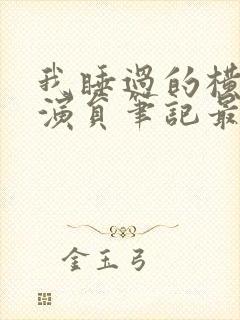 我睡過的橫
演員筆記最
金玉弓